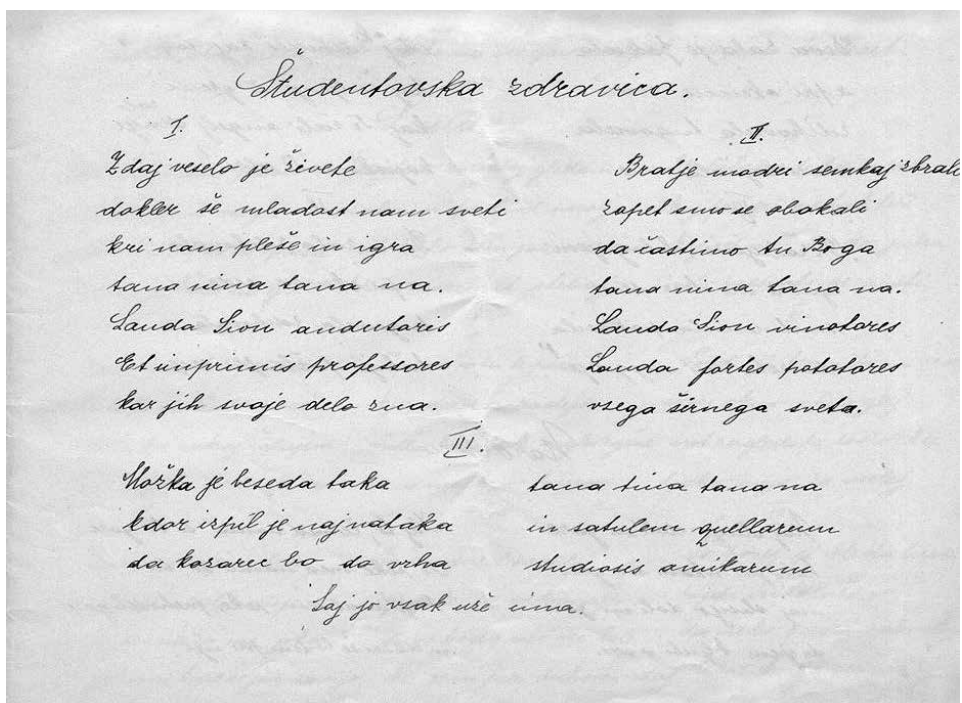 Študentovska zdravica.
I.
Zdaj veselo je živete
dokler še mladost nam sveti
kri nam pleše in igra
tana nina tana na.
Lauda Sion andutoris
Et imprimis professores
kar jih svoje delo zna.
II.
Bratje modri semkaj zbrali
zopet smo se obokali
da častimo tu Boga
tana nina tana na.
Lauda Sion vinotores
Lauda fortes pototores
vsega širnega sveta.
III.
Možka je beseda taka
kdor izpil je naj nataka
da kozarec bo do vrha
tana tina tana na
in satulem quellarum
studiosis amikarum
Saj jo vsak uže ima.